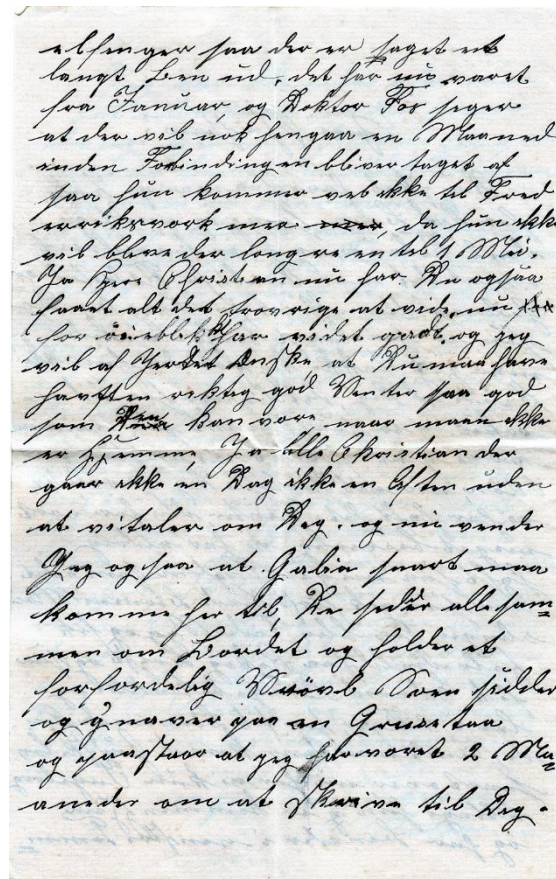 elfenger saa der er taget et
langt Ben ud, det har nu varet
fra Januar, og Doktor Fos seger
at der vil nok hengaa en Maaned
inden Forbindingen bliver taget af
saa hun kommer vel ikke til Fred
erriksvork mer, da hun ikke
veil bleve der longre en til 1 Mai.
Ja Kjere Christian nu har Du ogsaa
faaet alt det sovrige at vide, nu
for öieblekket har videt godt, og jeg
veil af Hertet Önske, at Du maa have
havft en rektig god Venter saa god
som den kan vore, naar man ikke
er Hjemme, Ja lille Christian der
gaar ikke en Dag ikke en Aften uden
at vi taler om Deg. og nu venter
Jeg ogsaa at Galia snart maa
komme her til, De sidder alle sam=
men om Bordet og holder et
forfordelig Vrövl Soen sidder
og gnaver paa en
og paastaar at jeg har voret 2 Ma=
aneder om at skrive til Deg.